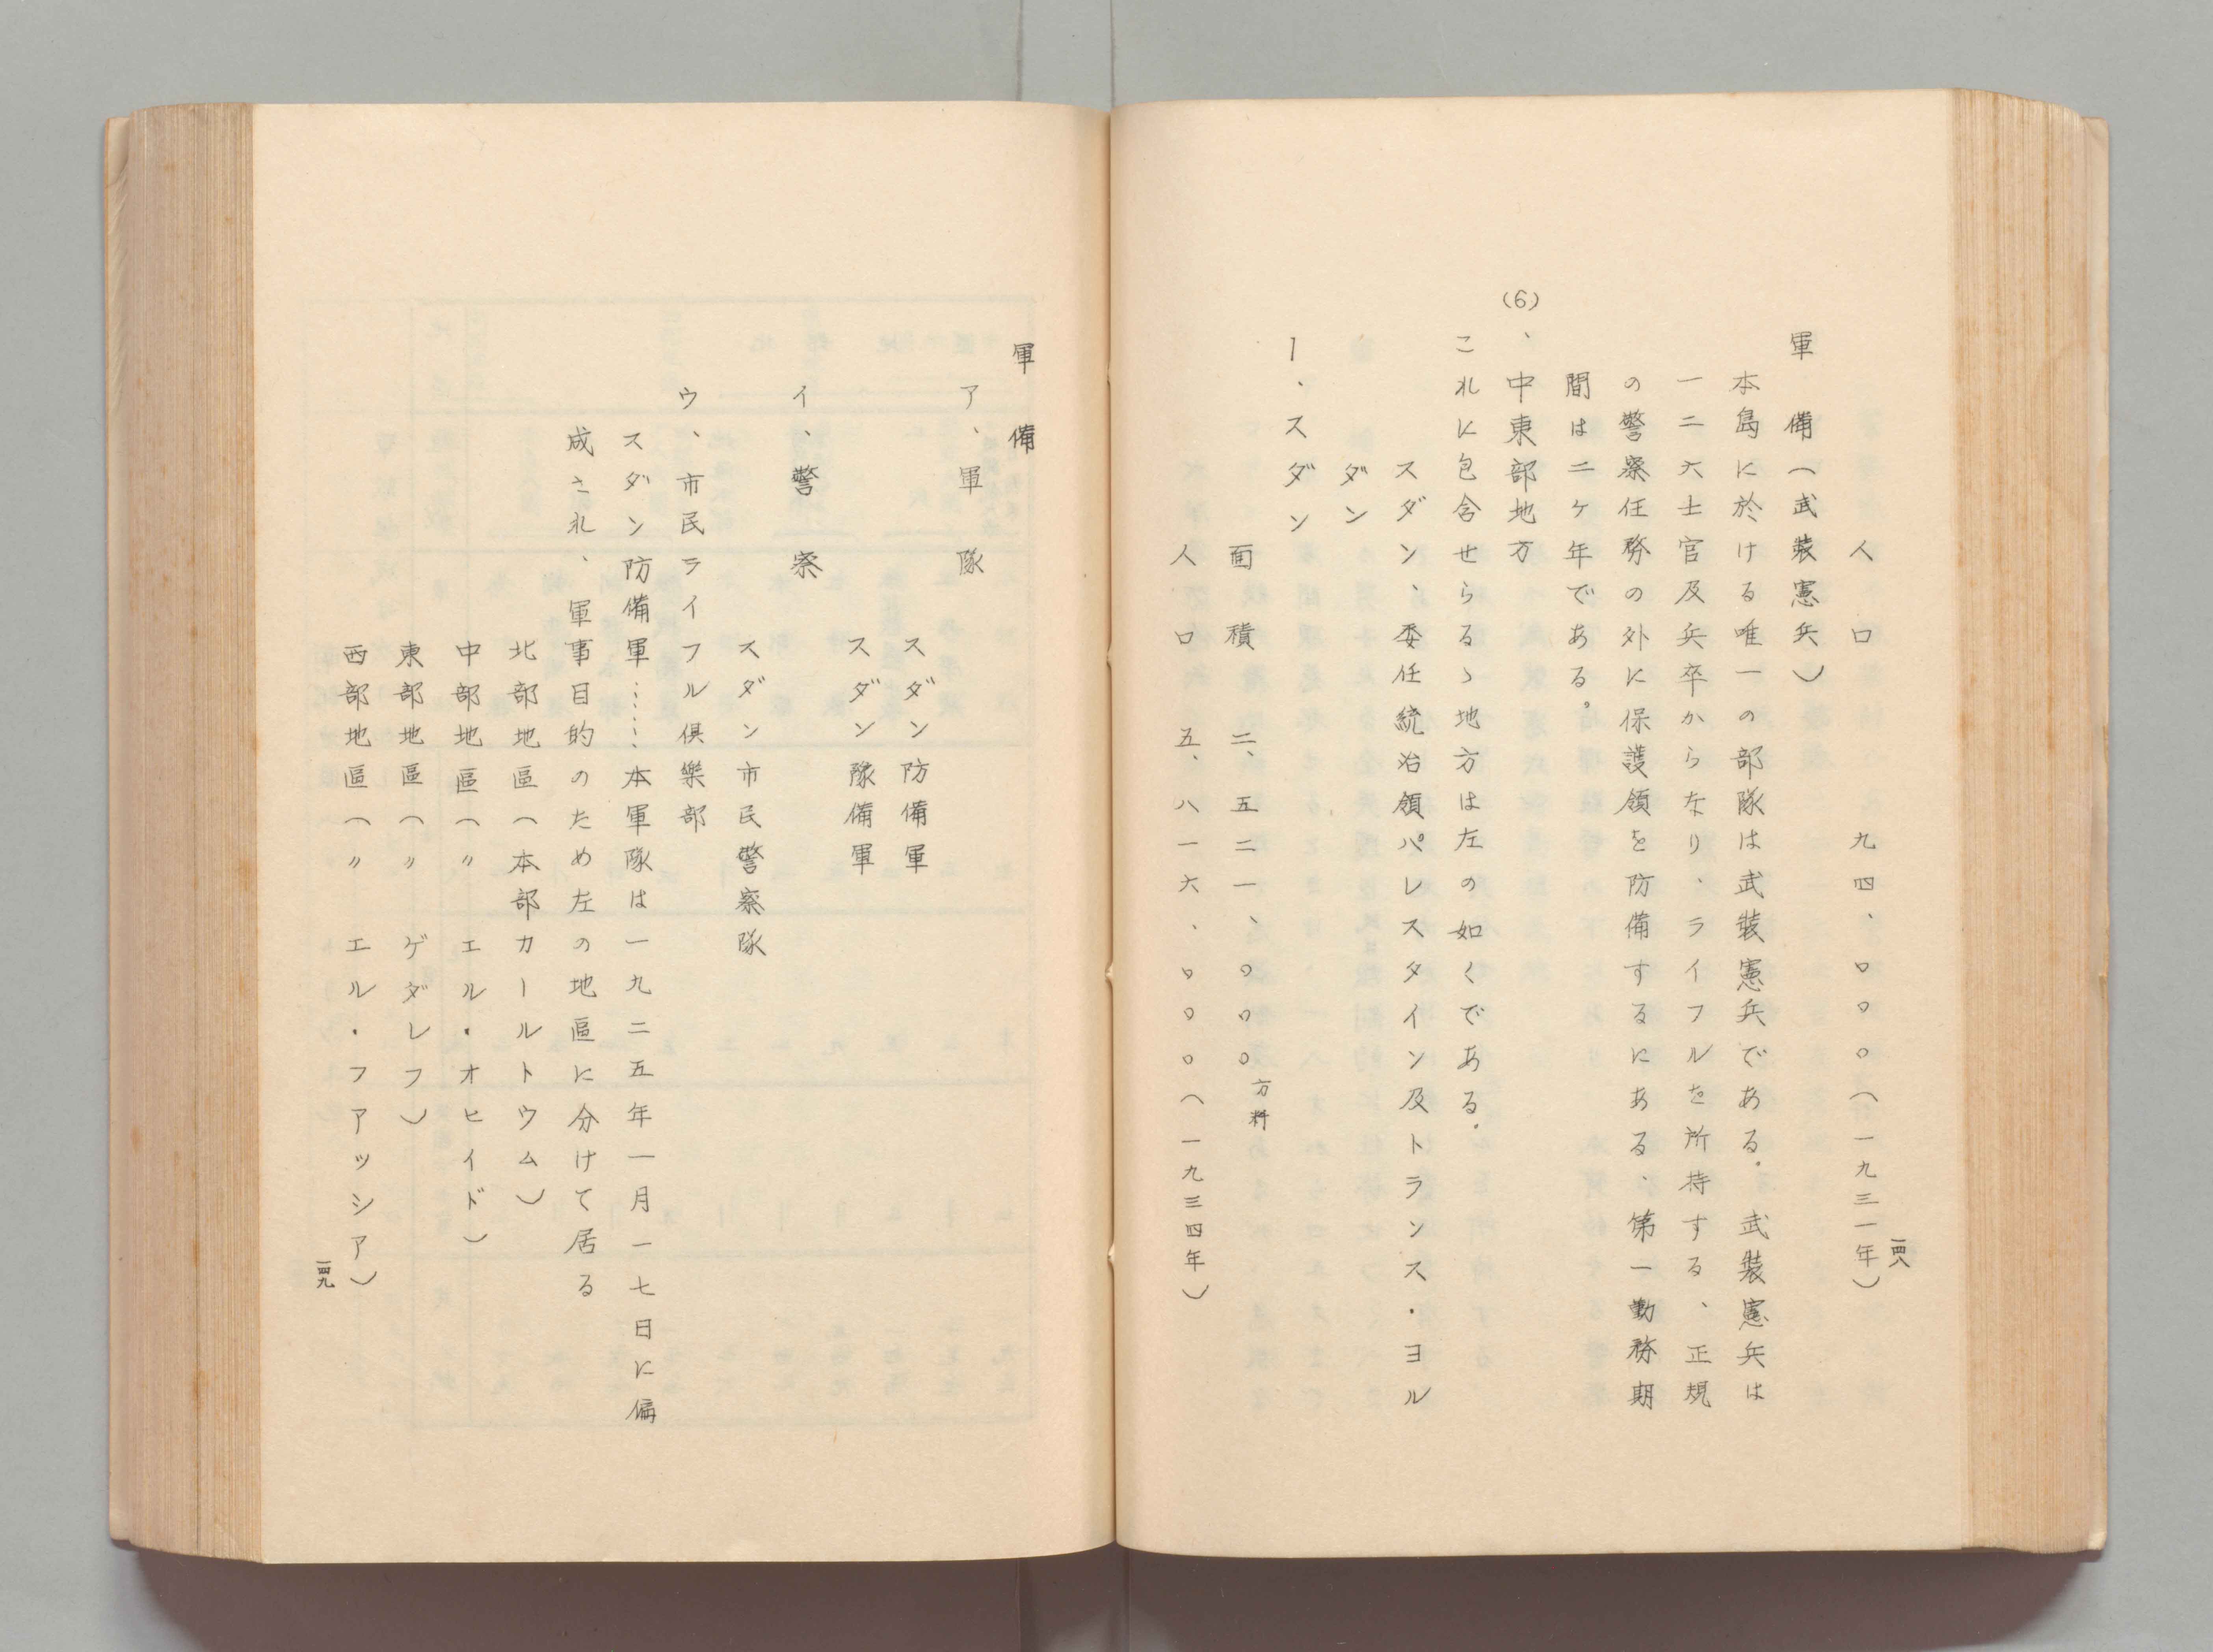 一四八
人口 九四、〇〇〇(一九三一年)
軍備(武装憲兵)
本島に於ける唯一の部隊は武装憲兵である。武装憲兵は
一二六士官及兵卒からなり、ライフルを所持する、正規
の警察任務の外に保護領を防備するにある、第一勤務期
間は二ケ年である。
(6)、中東部地方
これに包含せらるゝ地方は左の如くである。
スダン、委任統治領パレスタイン及トランス・ヨル
ダン
1、スダン
面積 二、五二一、〇〇〇方粁
人口 五、八一六、〇〇〇(一九三四年)
軍備
ア、軍隊
スダン防備軍
スダン豫備軍
イ、警察
スダン市民警察隊
ウ、市民ライフル倶樂部
スダン防備軍……本軍隊は一九二五年一月一七日に偏
成され、軍事目的のため左の地區に分けて居る
北部地區(本部カールトウム)
中部地區(〃 エル・オヒイド)
東部地區(〃 ゲダレフ)
西部地區(〃 エル・フアッシア)
一四九